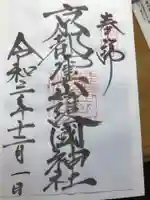 奉拝
京都霊山護国神社
令和三年十二月一日